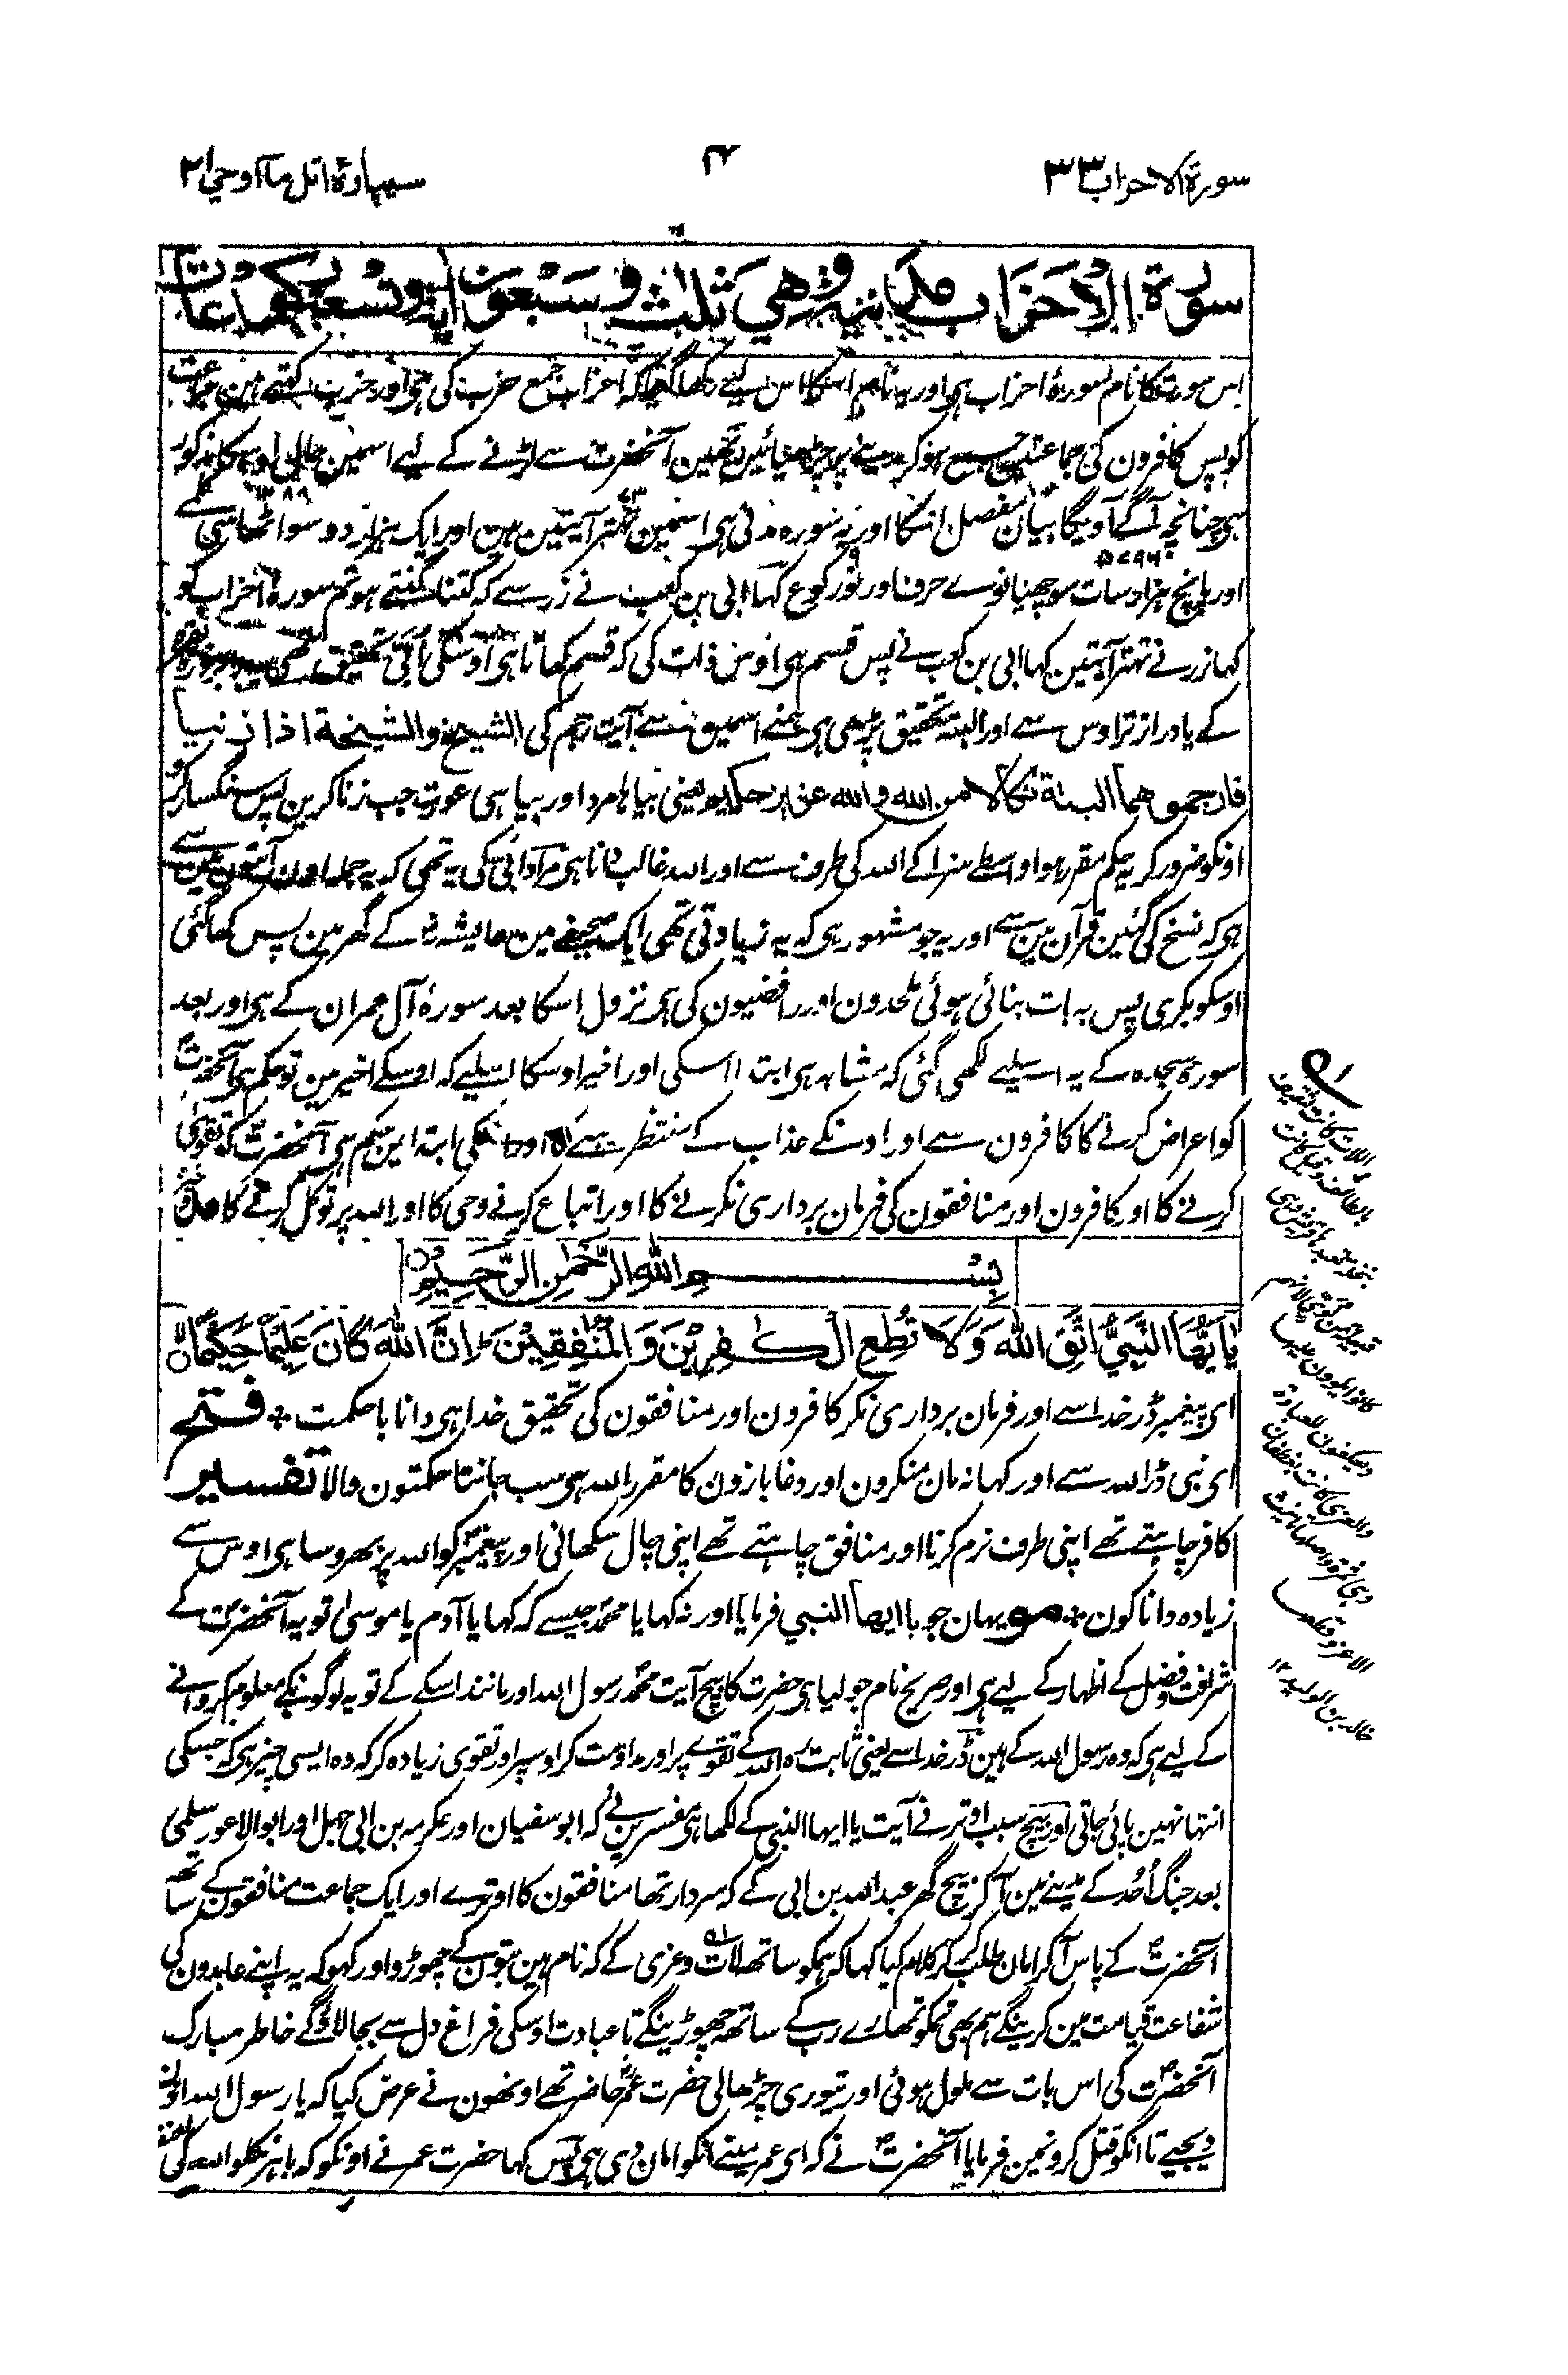 سورة الاحزاب ۳۳
سیپارۂ اتل ما اوحی ۲۱
سورة الاحزاب مدنیة وهی ثلث وسبعون ایة وتسع رکوعات
اس سورت کا نام سورۂ احزاب ہی اور یہ نام اسکا اس لیے رکھا گیا کہ احزاب جمع حزب کی ہی اور حزب کہتے ہین جماعت
کو پس کافرون کی جماعتین جمع ہوکر مدینے پر چڑھ آئین تھین آنحضرت سے لڑنے کے لیے اسمین حال اوسکا مذکور
ہی چنانچہ آگے آویگا بیان مفصل انکا اور یہ سورہ مدنی ہی اسمین تہتر آیتین ہین اور ایک ہزار دو سو اٹھاسی کلمے
اور پانچ ہزار سات سو چھیانوے حرف اور نو رکوع کہا ابی بن کعب نے زر سے کہ کتنا گنتے ہو تم سورۂ احزاب کو
کہا زر نے تہتر آیتین کہا ابی بن کعب نے پس قسم ہی اوس ذات کی کہ قسم کھاتا ہی اوسکی ابی تحقیق تھی یہ برابر سورۂ بقرہ
کے یا دراز تر اوس سے اور البتہ تحقیق پڑھی ہی ہمنے اسمین سے آیت رجم کی الشیخ والشیخة اذا زنیا
فارجموهما البتة نکالا من الله والله عزیز حکیم یعنی بیاہا مرد اور بیاہی عورت جب زنا کرین پس سنگسار کرو
اونکو ضرور کر یہ حکم مقرر ہوا واسطے سزا کے اللہ کی طرف سے اور اللہ غالب دانا ہی مراد ابی کی یہ تھی کہ یہ جملہ اون آیتون مین سے
ہی کہ نسخ کی گئین قرآن مین سے اور یہ جو مشہور ہی کہ یہ زیادتی تھی ایک صحیفے مین عایشہ رض کے گھر مین پس کھا گئی
اوسکو بکری پس یہ بات بنائی ہوئی ملحدون اور رافضیون کی ہی نزول اسکا بعد سورۂ آل عمران کے ہی اور بعد
سورۂ سجدہ کے یہ اسلیے لکھی گئی کہ مشابہ ہی ابتدا اسکی اور اخیر اوسکا اسلیے کہ اوسکے اخیر مین تو حکم ہی آنحضرت
کو اعراض کرنے کا کافرون سے اور اونکے عذاب کے منتظر رہنے کا اور اسکی ابتدا مین حکم ہی آنحضرت کو تقوی
کرنے کا اور کافرون اور منافقون کی فرمان برداری نکرنے کا اور اتباع کرنے وحی کا اور اللہ پر توکل کرنے کا
بسم الله الرحمن الرحیم
یٰاَیُّهَا النَّبِیُّ اتَّقِ اللهَ وَلَا تُطِعِ الْکٰفِرِیْنَ وَالْمُنٰفِقِیْنَ ؕ اِنَّ اللهَ کَانَ عَلِیْمًا حَکِیْمًا ۝
ای پیغمبر ڈر خدا سے اور فرمان برداری نکر کافرون اور منافقون کی تحقیق خدا ہی دانا با حکمت ٭ فتح
ای نبی ڈر اللہ سے اور کہا نہ مان منکرون اور دغابازون کا مقرر اللہ ہی سب جانتا حکمتون والا تفسیر
کافر چاہتے تھے اپنی طرف نرم کرنا اور منافق چاہتے تھے اپنی چال سکھانی اور پیغمبر کو اللہ پر بھروسا ہی اوس سے
زیادہ دانا کون ٭ مو یہان جو یا ایها النبی فرمایا اور نہ کہا یا محمد جیسے کہ کہا یا آدم یا موسیٰ تو یہ آنحضرت کے
شرافت و فضل کے اظہار کے لیے ہی اور صریح نام جو لیا ہی حضرت کا بیچ آیت محمد رسول اللہ اور مانند اسکے کے تو یہ لوگونکے معلوم کروانے
کے لیے ہی کہ وہ رسول اللہ کے ہین ڈر خدا سے یعنی ثابت رہ اللہ کے تقوے پر اور مداومت کر اوسپر اور تقوی زیادہ کر کہ وہ ایسی چیز ہی کہ جسکی
انتہا نہین پائی جاتی اور بیچ سبب اوترنے آیت یا ایہا النبی کے لکھا ہی مفسرین نے کہ ابو سفیان اور عکرمہ بن ابی جہل اور ابو الاعور سلمی
بعد جنگ اُحد کے مدینے مین آکر بیچ گھر عبد اللہ بن ابی کے کہ سردار تھا منافقون کا اوترے اور ایک جماعت منافقون کے ساتھ
آنحضرت کے پاس آکر امان طلب کر کر کلام کیا کہا کہ ہمکو ساتھ لات و عزی کے کہ نام ہین بتون کے چھوڑ دو اور کہو کہ یہ اپنے عابدون کی
شفاعت قیامت مین کرینگے ہم بھی تمکو تمہارے رب کے ساتھ چھوڑینگے تا عبادت اوسکی فراغ دل سے بجا لاؤگے خاطر مبارک
آنحضرت کی اس بات سے ملول ہوئی اور تیوری چڑھالی حضرت عمر حاضر تھے اونھون نے عرض کیا کہ یا رسول اللہ اذن
دیجیے تا انکو قتل کرون مین فرمایا آنحضرت نے کہ ای عمر مینے انکو امان دی ہی پس کہا حضرت عمر نے اونکو کہ باہر نکلو اللہ کی
اللات کانت لثقیف
بالطائف وقیل کانت
کانوا یلوون علیها
ویعکفون للعبادة
والعزی کانت لغطفان
خالد بن الولید ۱۲